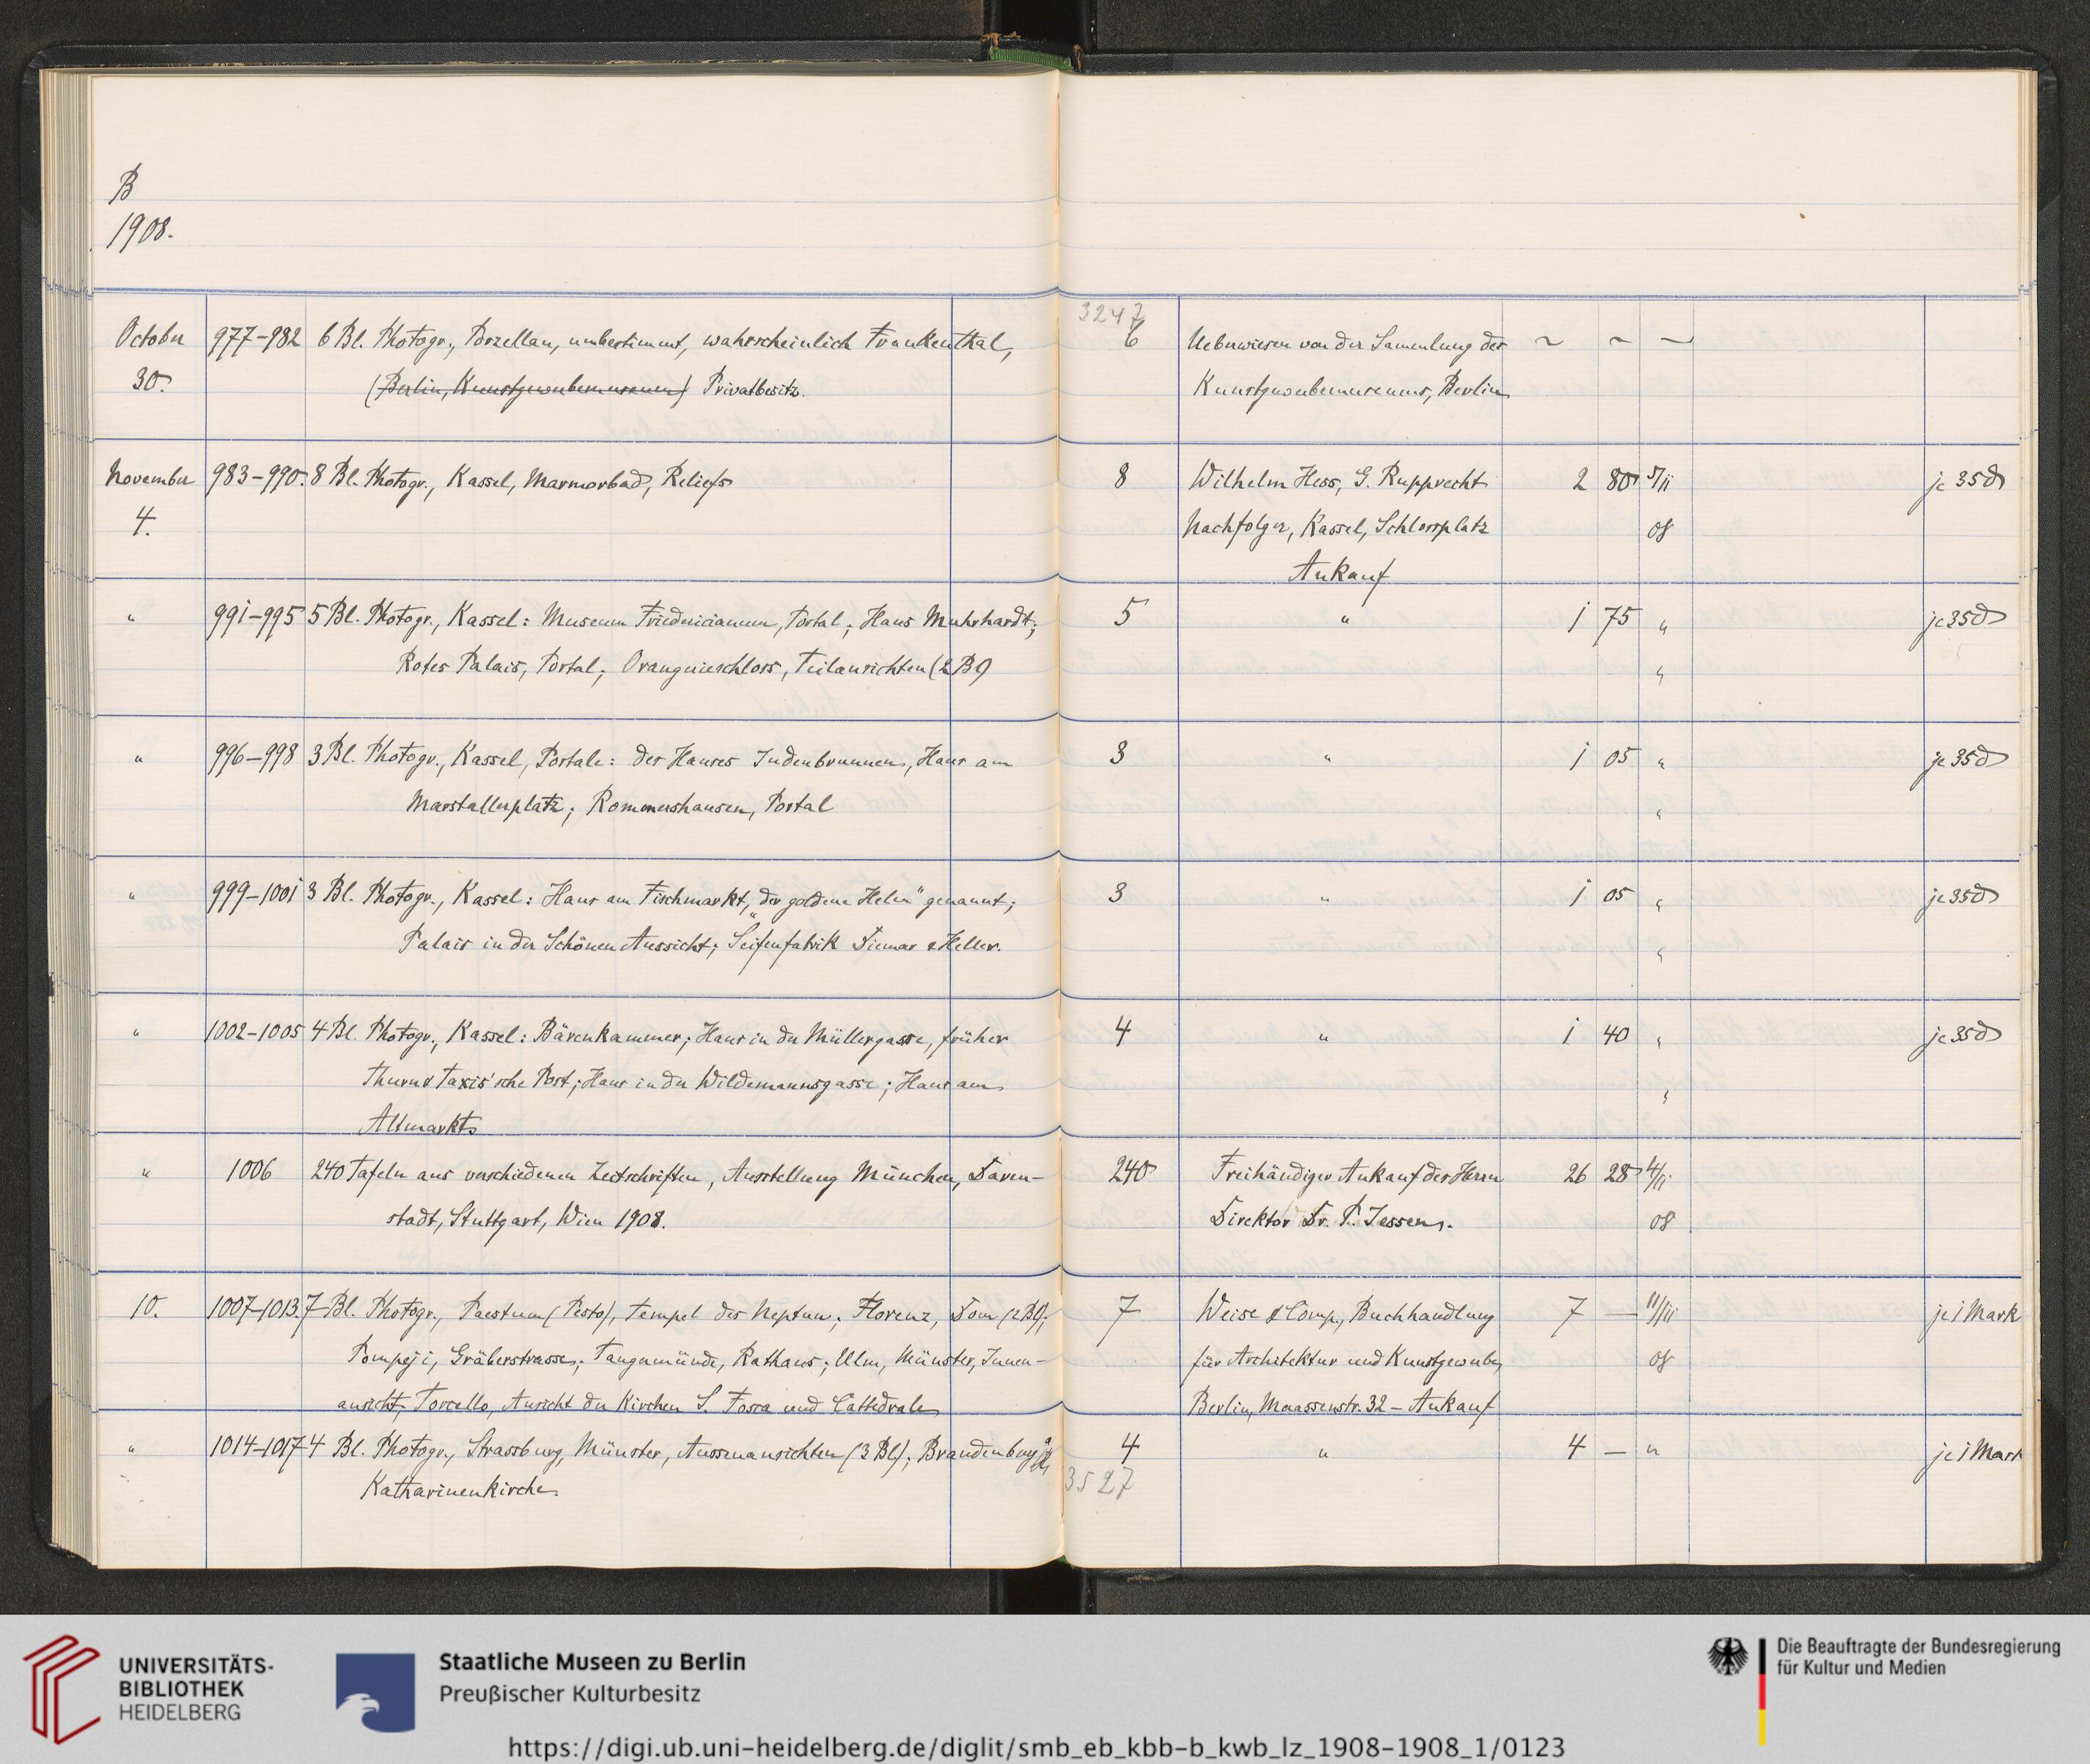 B
1908.
3247
October 977-982 6 Bl. Photogr., Porzellan, unbestimmt, wahrscheinlich Frankenthal, 6 Ueberwiesen von der Sammlung des ~ ~ —
30. (Berlin, Kunstgewerbemuseum) Privatbesitz. Kunstgewerbemuseums, Berlin
November 983-990. 8 Bl. Photogr., Kassel, Marmorbad, Reliefs 8 Wilhelm Hess, G. Rupprecht 2 80 5/11 je 35 d
4. Nachfolger, Kassel, Schlossplatz 08
Ankauf
" 991-995 5 Bl. Photogr., Kassel: Museum Fridericianum, Portal; Haus Muhrhardt; 5 " 1 75 " je 35 d
Rotes Palais, Portal; Orangerieschloss, Teilansichten (2 Bl) "
" 996-998 3 Bl. Photogr., Kassel, Portale: des Hauses Judenbrunnen, Haus am 3 " 1 05 " je 35 d
Marstallerplatz; Rommershausen, Portal "
" 999-1001 3 Bl. Photogr., Kassel: Haus am Fischmarkt, „der goldene Helm" genannt; 3 " 1 05 " je 35 d
Palais in der Schönen Aussicht; Seifenfabrik Diemar & Heller. "
" 1002-1005 4 Bl. Photogr., Kassel: Bärenkammer; Haus in der Müllergasse, früher 4 " 1 40 " je 35 d
Thurn & Taxis'sche Post; Haus in der Wildemannsgasse; Haus am "
Altmarkt
" 1006 240 Tafeln aus verschiedenen Zeitschriften, Ausstellung München, Darm- 240 Freihändiger Ankauf des Herrn 26 28 4/11
stadt, Stuttgart, Wien 1908. Direktor Dr. P. Jessen. 08
10. 1007-1013. 7 Bl. Photogr., Paestum (Pesto), Tempel des Neptun; Florenz, Dom (2 Bl); 7 Weise & Comp., Buchhandlung 7 — 11/11 je 1 Mark
Pompeji, Gräberstrasse; Tangermünde, Rathaus; Ulm, Münster, Innen- für Architektur und Kunstgewerbe, 08
ansicht; Torcello, Ansicht der Kirchen S. Fosca und Cattedrale Berlin, Maassenstr. 32 - Ankauf
" 1014-1017 4 Bl. Photogr., Strassburg, Münster, Aussenansichten (3 Bl); Brandenburg 4 " 4 — " je 1 Mark
Katharinenkirche. 3527
UNIVERSITÄTS-
BIBLIOTHEK
HEIDELBERG
Staatliche Museen zu Berlin
Preußischer Kulturbesitz
Die Beauftragte der Bundesregierung
für Kultur und Medien
https://digi.ub.uni-heidelberg.de/diglit/smb_eb_kbb-b_kwb_lz_1908-1908_1/0123